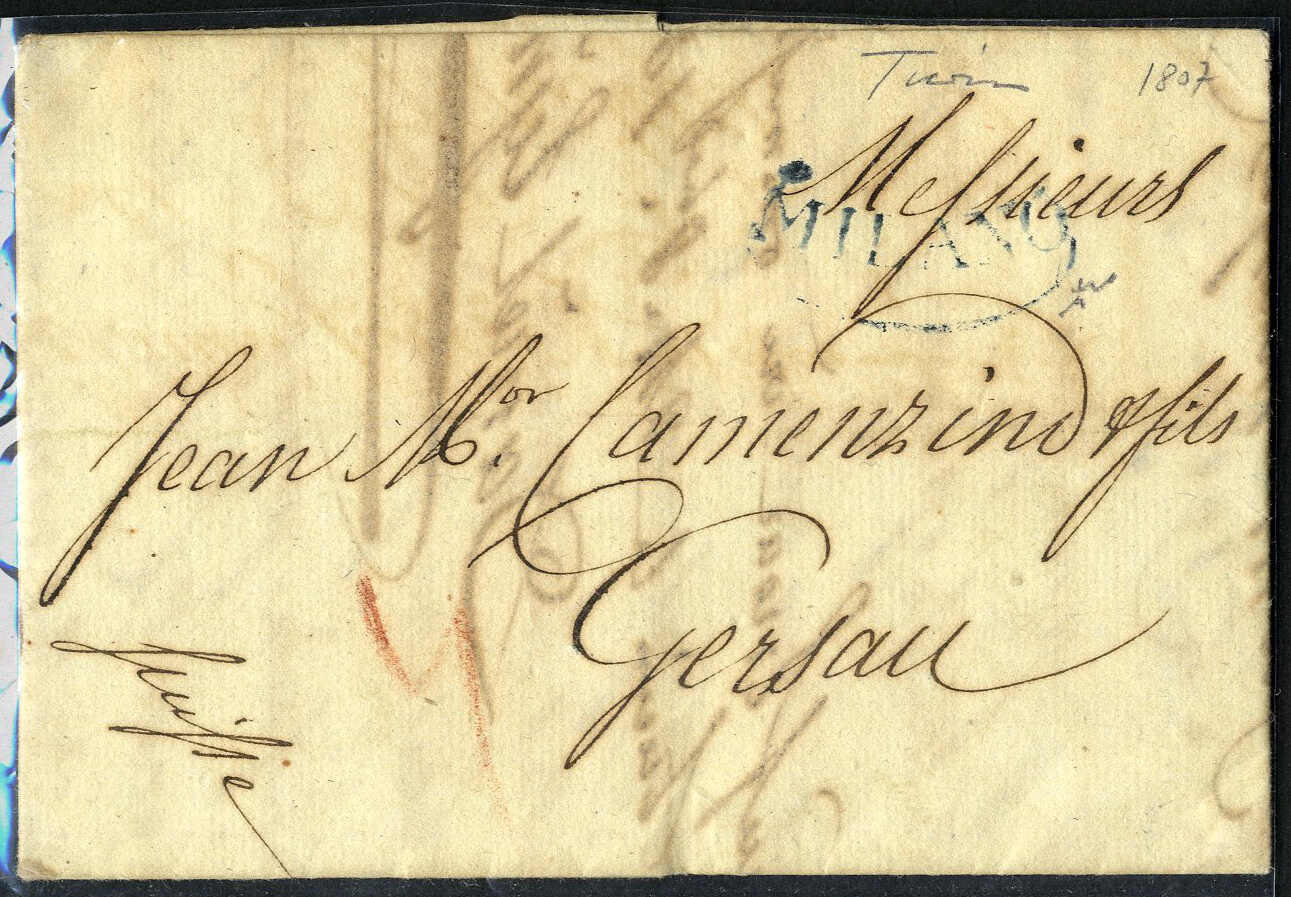 Turin 1807
Messieurs
MILANO
Jean M.or Camenzind & fils
Gersau
Suisse